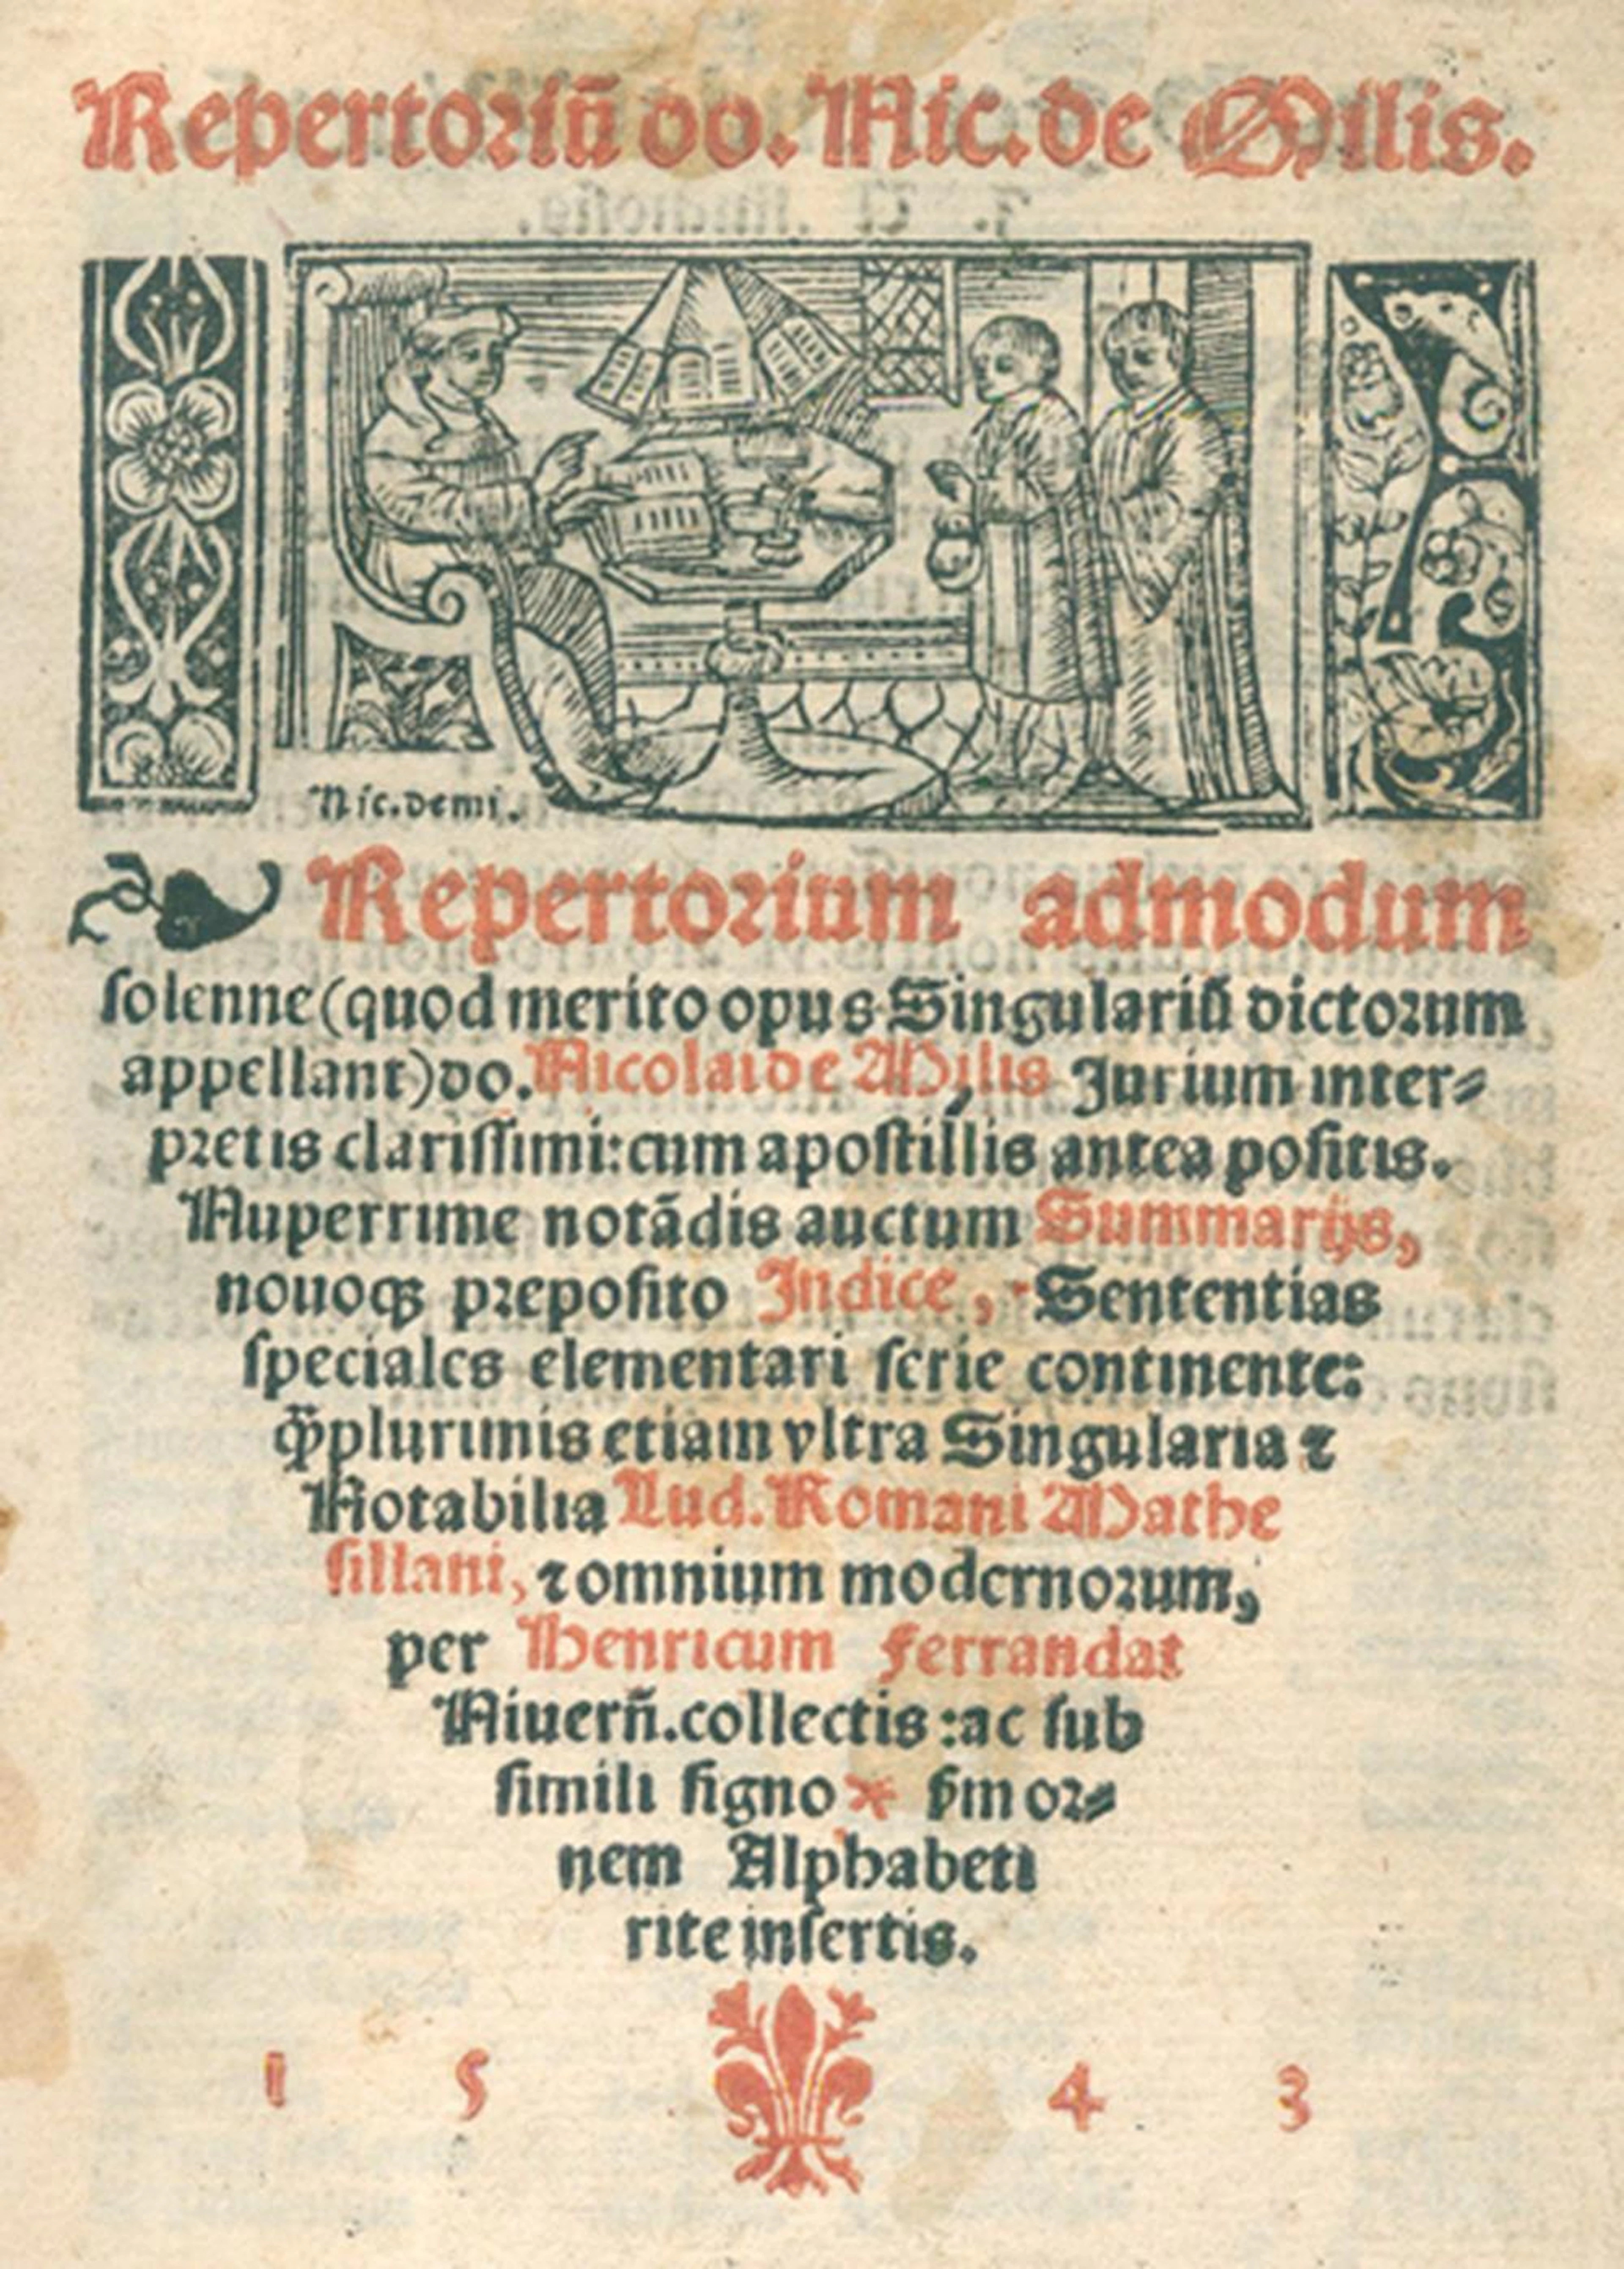 Repertoriũ do. Nic. de Milis.
Nic. de mi.
Repertorium admodum
solenne (quod merito opus Singulariũ dictorum
appellant) do. Nicolai de Milis Jurium inter⸗
pretis clarissimi: cum apostillis antea positis.
Nuperrime notãdis auctum Summarijs,
nouoqꝫ preposito Indice, Sententias
speciales elementari serie continente:
Qͣ̃plurimis etiam vltra Singularia ⁊
Notabilia Lud. Romani Mathe
sillani, ⁊ omnium modernorum,
per Henricum Ferrandat
Niuerñ. collectis: ac sub
simili signo * ẜm or⸗
nem Alphabeti
rite insertis.
1 5 4 3